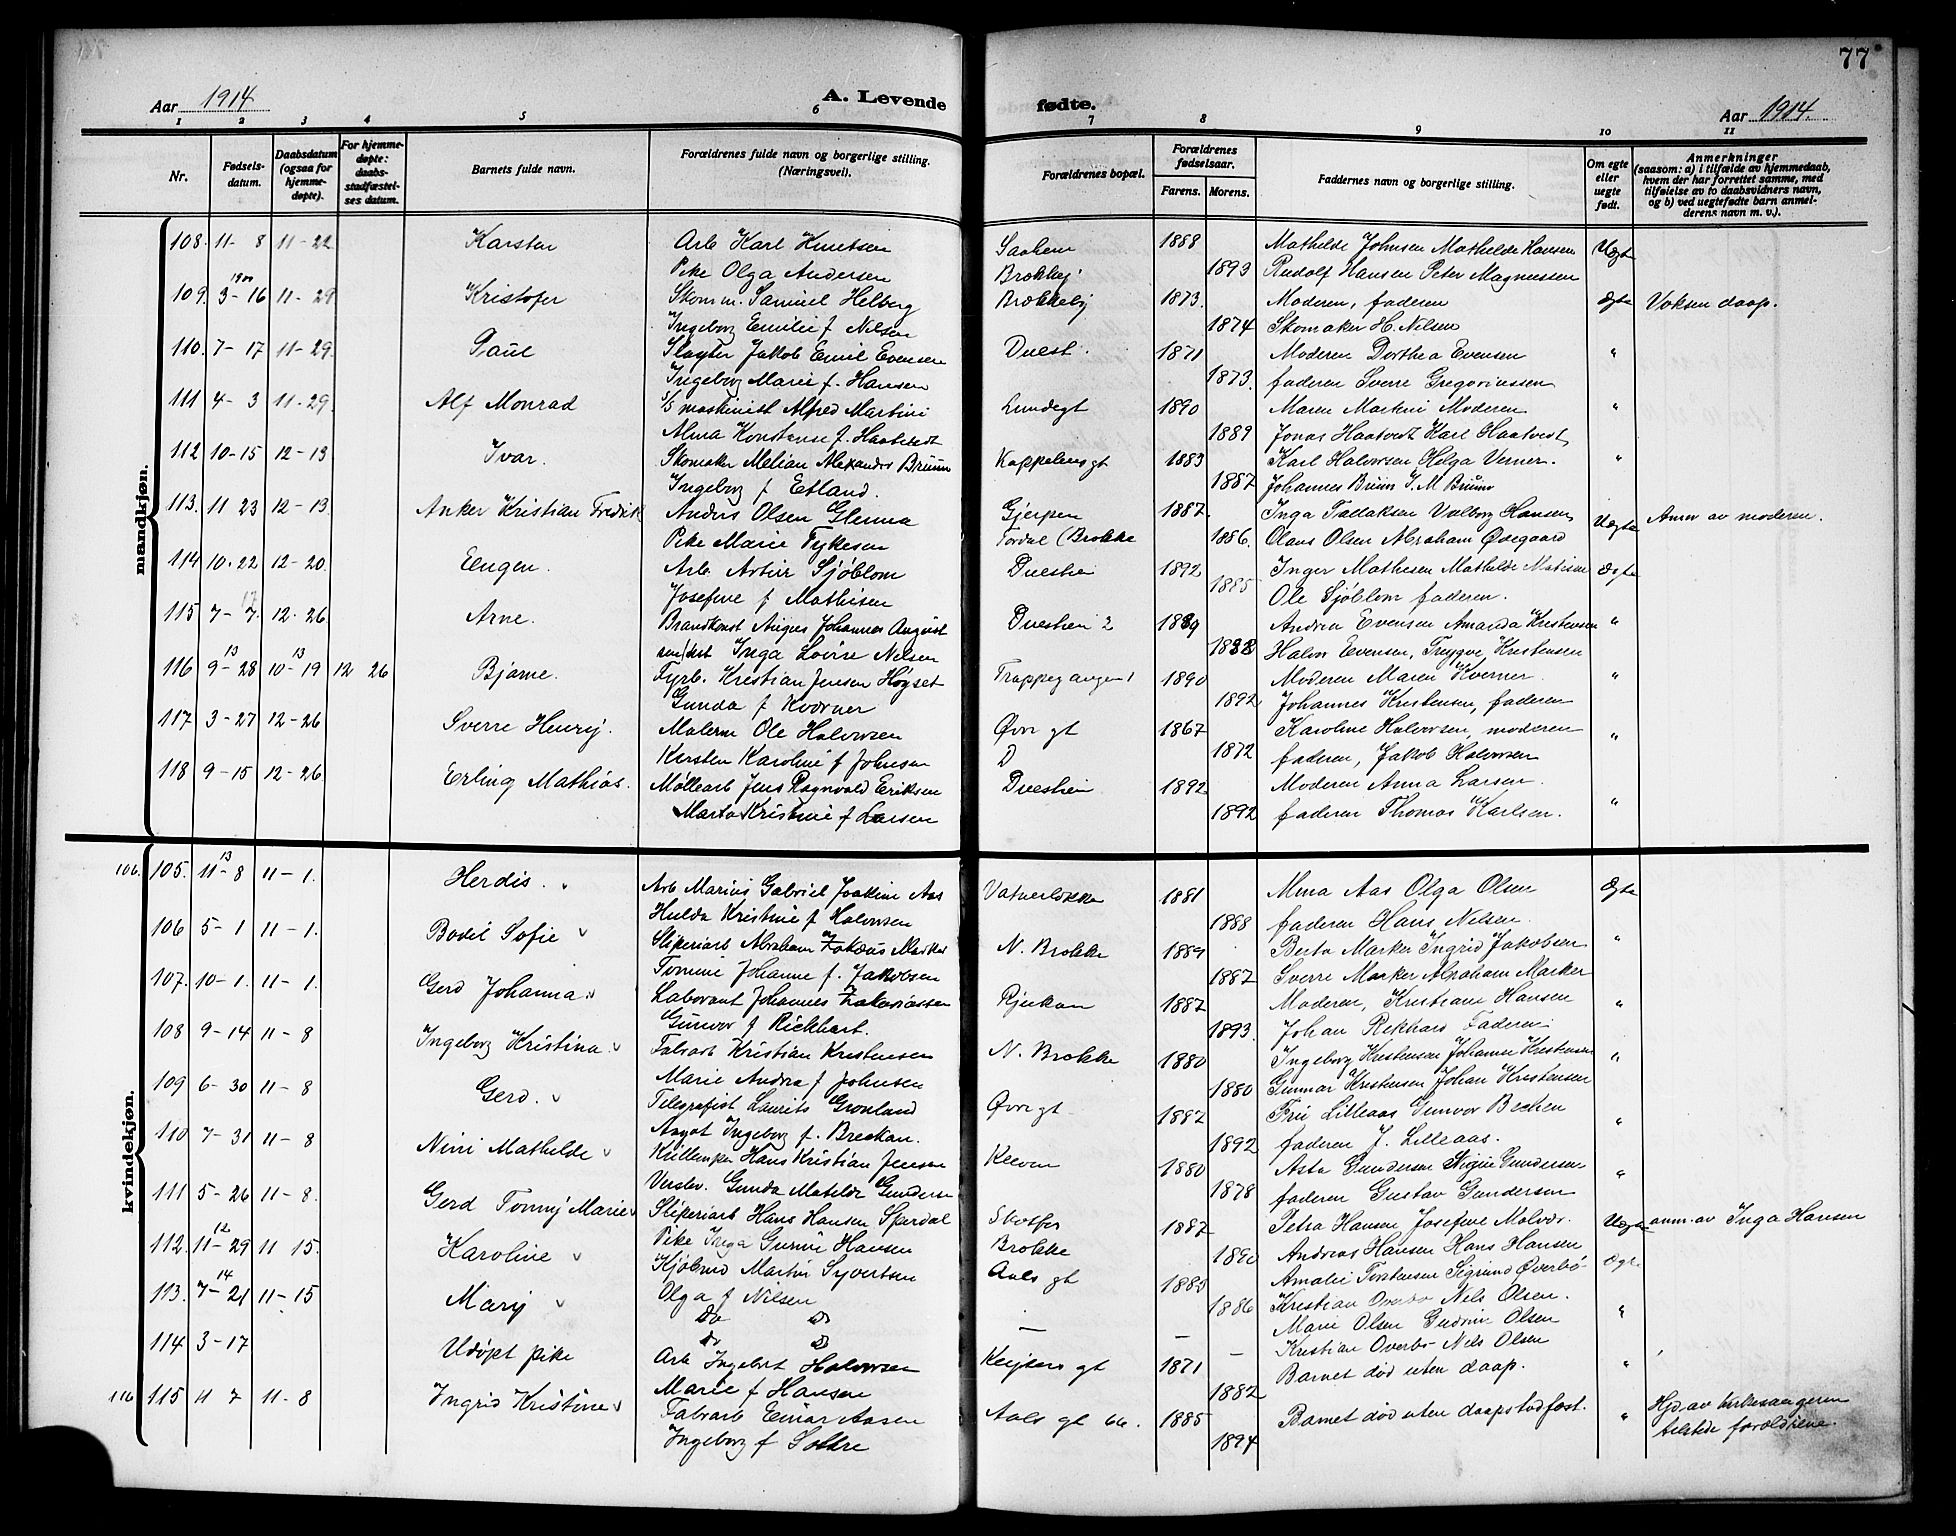 77
Aar 1914
A. Levende
fødte.
Aar 1914.
1 2 3 4 5 6 7 8 9 10 11
Nr.
Fødsels-
datum.
Daabsdatum
(ogsaa for
hjemme-
døpte).
For hjemme-
døpte:
daabs-
stadfæstel-
ses datum.
Barnets fulde navn.
Forældrenes fulde navn og borgerlige stilling.
(Næringsvei).
Forældrenes bopæl.
Forældrenes
fødselsaar.
Farens. Morens.
Faddernes navn og borgerlige stilling.
Om egte
eller
uegte
født.
Anmerkninger
(saasom: a) i tilfælde av hjemmedaab,
hvem der har forrettet samme, med
tilføielse av to daabsvidners navn,
og b) ved uegtefødte barn anmel-
derens navn m. v.).
mandkjøn.
108. 11- 8 11-22 Karsten Arb Karl Knutsen 1888 Mathilde Johnsen Mathilde Hansen Uegte
Pike Olga Andersen Brekkej 1893 Rudolf Hansen Peter Magnussen
109. 3-16 11-29 Kristofer Skom m. Samuel Helberg Brekkebj 1873. Moderen, faderen Egte Voksen daap.
Ingeborg Emilie f Nilsen 1874 Skomaker H. Nilsen
110. 7-17 11-29. Paul Slagter Jakob Emil Evensen Duest. 1871 Moderen Dorthea Evensen "
Ingeborg Marie f. Hansen 1873. faderen Sverre Gregoriussen
111 4- 3 11-29. Alf Monrad S/S maskinist Alfred Martini Lundegt 1890 Maren Martini Moderen "
Alma Konstanse f. Haatvedt 1889 Jonas Haatvedt Karl Haatvedt
112 10-15 12-13 Ivar. Skomaker Melian Aleksander Bruun Kappelensgt 1883 Karl Halvorsen Helga Verner. "
Ingeborg f Etland. 1887 Johannes Bruun J. M Bruun
113. 11 23 12-13 Anker Kristian Fredrik Anders Olsen Glenna Gjerpen 1887. Inga Valborg Hansen Uegte Anm av moderen.
Pike Marie Tykesen (Brekke 1886. Olaus Olsen Abraham Ødegaard
114 10.22 12-20. Eugen. Arb. Artur Sjöblom Duestien 1892 Inger Mathisen Mathilde Egte
Josefine f Mathisen 1885 Ole Sjöblom faderen.
115 7- 7. 12-26 Arne. Brandkonst August Johannes August Duestien 2 1889 Andrea Evensen Amanda Kristensen "
Inga Lovise Nilsen Halvor Evensen, Trygve Kristensen
116 9-28 13 10-19 13 12 26 Bjarne. Fyrb. Kristian Jensen Høgset Trappegangen 1 1890 Moderen Maren Kverner. "
Gunda f Kværner 1892 Johannes Kristensen, faderen
117 3-27 12-26 Sverre Henry. Malerm Ole Halvorsen Øvregt 1867 Karoline Halvorsen, moderen "
Kersten Karoline f Johnsen D 1872 faderen, Jakob Halvorsen
118 9-15 12-26. Erling Mathias. Møllearb Jens Ragnvald Eriksen Duestien 1892 Moderen Anna Larsen. "
Marta Kristine f Larsen 1892 faderen Thomas Karlsen.
kvindekjøn.
106. 105. 11-8 13 11-1. Herdis. Arb Marius Gabriel Joakim Aas 1881 Alma Aas Olga Olsen Egte
Hulda Kristine f Halvorsen 1888 faderen Hans Nilsen.
106 5-1 11-1. Bodil Sofie Sliperiarb Abraham Zakæus Marker N. Brekke 1889 Berta Marker Ingrid Jakobsen "
Tomine Johanne f. Jakobsen 1887 Sverre Marker Abraham Marker
107. 10-1. 11-1. Gerd Johanna. Laborant Johannes Zakariassen Rjukan 1887 Moderen, Kristiane Hansen "
Gunvor f Rickhart. 1893. Johan Rekhard Faderen
108 9-14 11-8 Ingeborg Kristina. Fabrarb Kristian Kristensen N. Brekke 1880 Ingeborg Kristensen Johanne Kristensen "
Marie Andrea f Johnsen 1880 Gunnar Kristensen Johan Kristensen
109 6-30 11-8 Gerd. Telegrafist Laurits Grønland Øvregt 1887 Fru Lilleaas Gunvor Becken "
Aagot Ingeborg f. Breckan. 1892 faderen J. Lilleaas.
110 7-31 11-8 Nini Mathilde Hans Kristian Jensen Kleven 1880 Asta Gundersen Signe Gundersen "
Gunda Matilde Gunderse 1878 faderen Gustav Gundersen
111 5-26 11-8. Gerd Tonny Marie Sliperiarb Hans Hansen Spærdal Skotfos 1887 Petra Hansen Josefine Uegte anm. av Inga Hansen
Pike Inga Gurine Hansen Brekke 1890 Andreas Hansen Hans Hansen
112. 11-29 12 11 15. Karoline Kjøbmd Martin Syvertsen Aalsgt 1885 Amalie Torstensen Sigrund Øverbö Egte
Olga f Nilsen 1886 Kristian Overbo Nils Olsen.
113. 7-21 14 11-15 Mary Do Do - - Marie Olsen Gudrun Olsen "
Do Do - Kristian Overbo Nils Olsen
114 3-17 Udøpt pike Arb Ingebret Halvorsen Keysersgt 1871 Barnet död uten daap. "
Marie f Hansen 1882
116 115 11 7 11-8 Ingrid Kristine Fabrarb Einar Aasen Aalsgt 66. 1885 Barnet död uten daapstadfæst. " Hjd. av kirkesangeren
Ingeborg f Soltre 1894 tilstede forældrene.